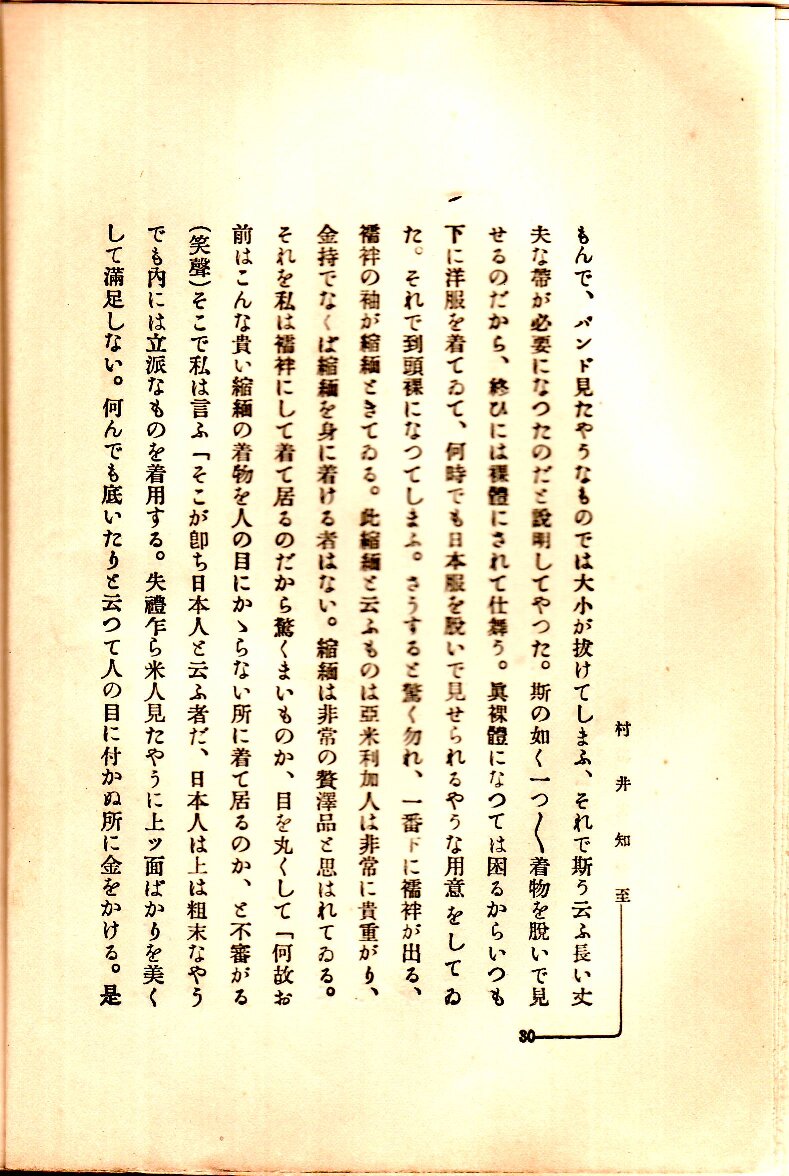 村井知至
30
もんで、バンド見たやうなものでは大小が抜けてしまふ、それで斯う云ふ長い丈
夫な帶が必要になつたのだと説明してやつた。斯の如く一つ〱着物を脱いで見
せるのだから、終ひには裸體にされて仕舞う。眞裸體になつては困るからいつも
下に洋服を着てゐて、何時でも日本服を脱いで見せられるやうな用意をしてゐ
た。それで到頭裸になつてしまふ。さうすると驚く勿れ、一番下に襦袢が出る、
襦袢の袖が縮緬ときてゐる。此縮緬と云ふものは亞米利加人は非常に貴重がり、
金持でなくば縮緬を身に着ける者はない。縮緬は非常の贅澤品と思はれてゐる。
それを私は襦袢にして着て居るのだから驚くまいものか、目を丸くして「何故お
前はこんな貴い縮緬の着物を人の目にかゝらない所に着て居るのか、と不審がる
(笑聲)そこで私は言ふ「そこが卽ち日本人と云ふ者だ、日本人は上は粗末なやう
でも内には立派なものを着用する。失禮乍ら米人見たやうに上ッ面ばかりを美く
して滿足しない。何んでも底いたりと云つて人の目に付かぬ所に金をかける。是